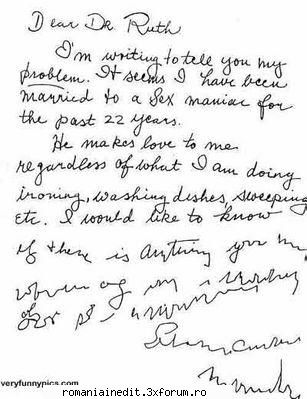 Dear Dr Ruth
I'm writing to tell you my
problem. It seems I have been
married to a Sex maniac for
the past 22 years.
He makes love to me
regardless of what I am doing
ironing, washing dishes, sweeping
etc. I would like to know
if there is anything you
veryfunnypics.com
romaniainedit.3xforum.ro